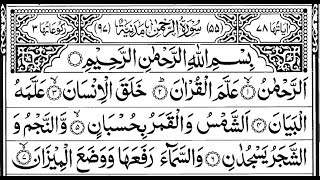 اٰیَاتُهَا ٧٨ (٥٥) سُوْرَةُ الرَّحْمٰنِ مَدَنِيَّةٌ (٩٧) رُكُوْعَاتُهَا ٣
بِسْمِ اللهِ الرَّحْمٰنِ الرَّحِيْمِ
اَلرَّحْمٰنُ ۙ١ عَلَّمَ الْقُرْاٰنَ ؕ٢ خَلَقَ الْاِنْسَانَ ۙ٣ عَلَّمَهُ
الْبَيَانَ ٤ اَلشَّمْسُ وَالْقَمَرُ بِحُسْبَانٍ ۪٥ وَّالنَّجْمُ وَ
الشَّجَرُ يَسْجُدٰنِ ٦ وَالسَّمَآءَ رَفَعَهَا وَوَضَعَ الْمِيْزَانَ ۙ٧